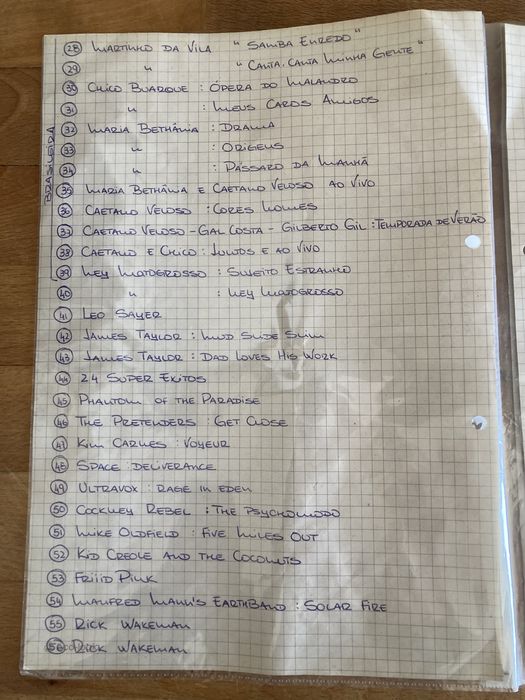 BRASILEIRA
28 MARTINHO DA VILA "SAMBA ENREDO"
29 " "CANTA, CANTA MINHA GENTE"
30 CHICO BUARQUE : ÓPERA DO MALANDRO
31 " : MEUS CAROS AMIGOS
32 MARIA BETHÂNIA : DRAMA
33 " : ORIGENS
34 " : PÁSSARO DA MANHÃ
35 MARIA BETHÂNIA E CAETANO VELOSO AO VIVO
36 CAETANO VELOSO : CORES NOMES
37 CAETANO VELOSO - GAL COSTA - GILBERTO GIL : TEMPORADA DE VERÃO
38 CAETANO E CHICO : JUNTOS E AO VIVO
39 NEY MATOGROSSO : SUJEITO ESTRANHO
40 " : NEY MATOGROSSO
41 LEO SAYER
42 JAMES TAYLOR : MUD SLIDE SLIM
43 JAMES TAYLOR : DAD LOVES HIS WORK
44 24 SUPER EXITOS
45 PHANTOM OF THE PARADISE
46 THE PRETENDERS : GET CLOSE
47 KIM CARNES : VOYEUR
48 SPACE : DELIVERANCE
49 ULTRAVOX : RAGE IN EDEN
50 COCKNEY REBEL : THE PSYCHOMODO
51 MIKE OLDFIELD : FIVE MILES OUT
52 KID CREOLE AND THE COCONUTS
53 FRIJID PINK
54 MANFRED MANN'S EARTHBAND : SOLAR FIRE
55 RICK WAKEMAN
56 RICK WAKEMAN